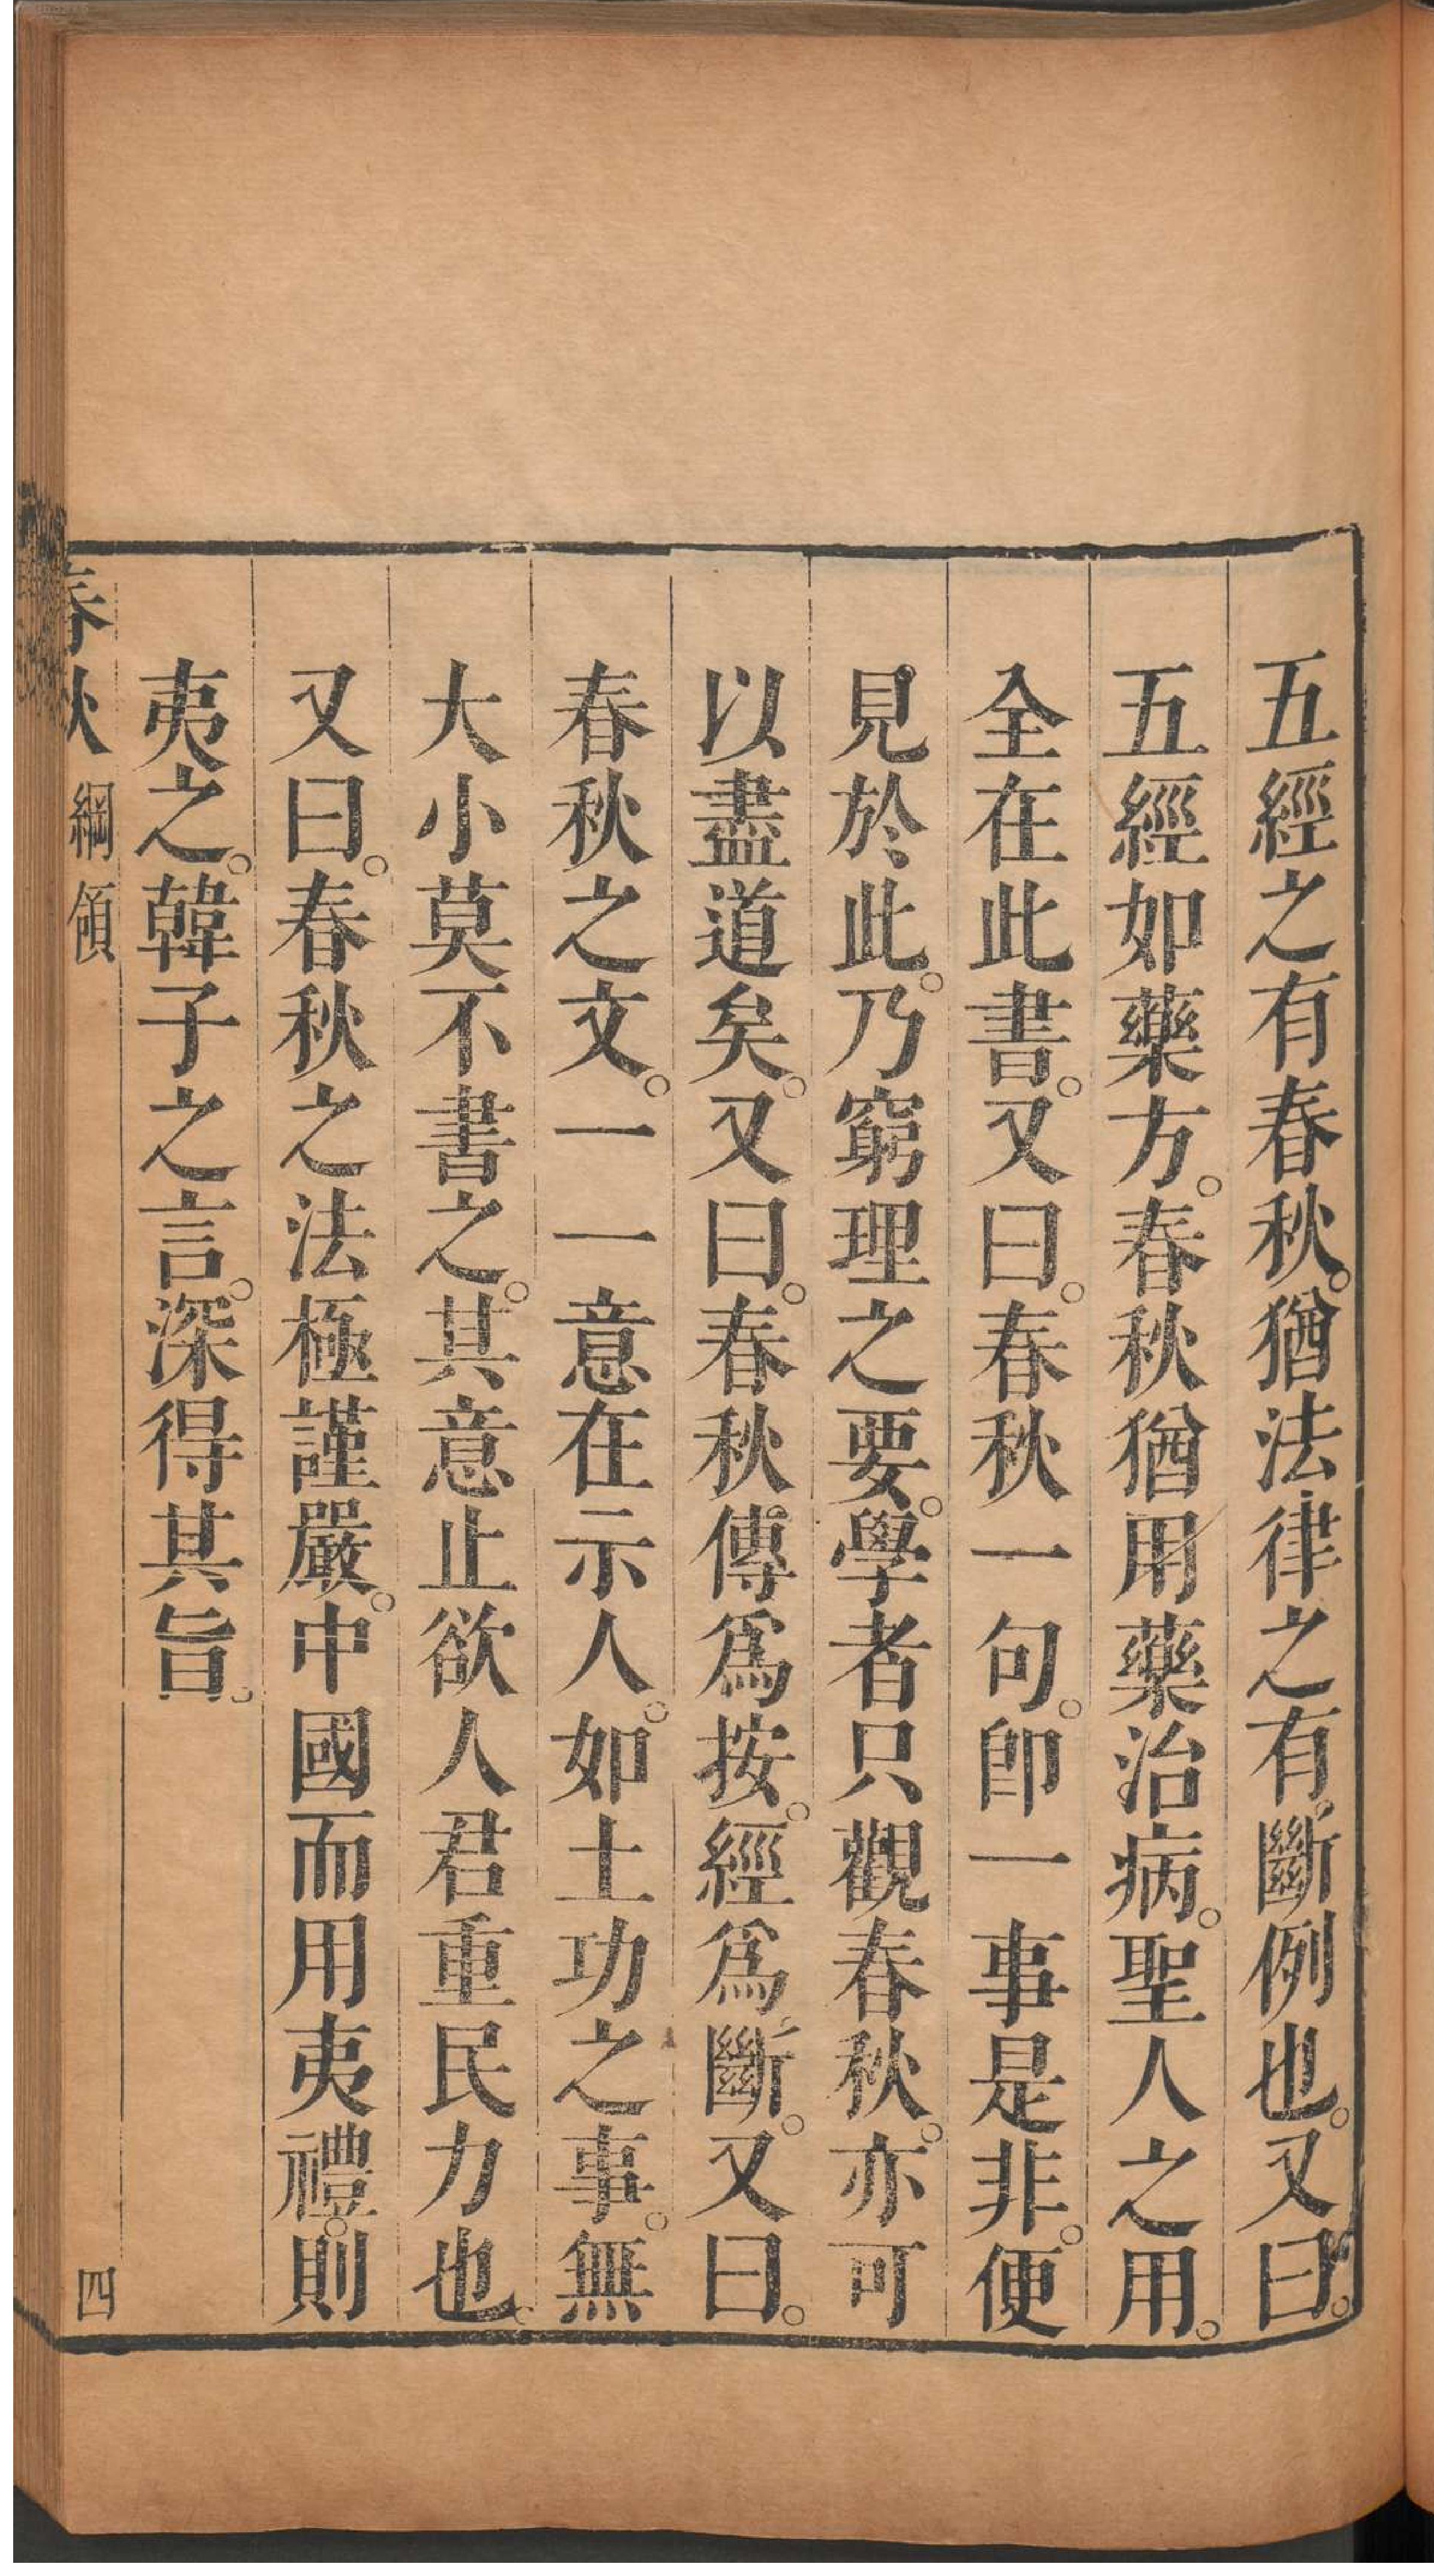 五經之有春秋。猶法律之有斷例也。又曰。
五經如藥方。春秋猶用藥治病。聖人之用。
全在此書。又曰。春秋一句。卽一事是非。便
見於此。乃窮理之要。學者只觀春秋。亦可
以盡道矣。又曰。春秋傳爲按。經爲斷。又曰。
春秋之文。一一意在示人。如土功之事。無
大小莫不書之。其意止欲人君重民力也。
又曰。春秋之法極謹嚴。中國而用夷禮。則
夷之。韓子之言。深得其旨。
春秋 綱領 四